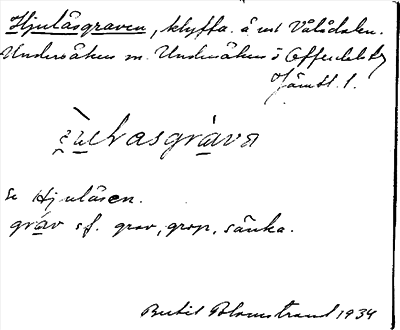 Hjulåsgraven, klyfta å ... Vålådalen.
Undersåkers sn. Undersåkers o Offerdals ...
Jämtl. l.
se Hjulåsen.
grav sf. grav, grop, sänka.
Bertil Blomstrand 1934